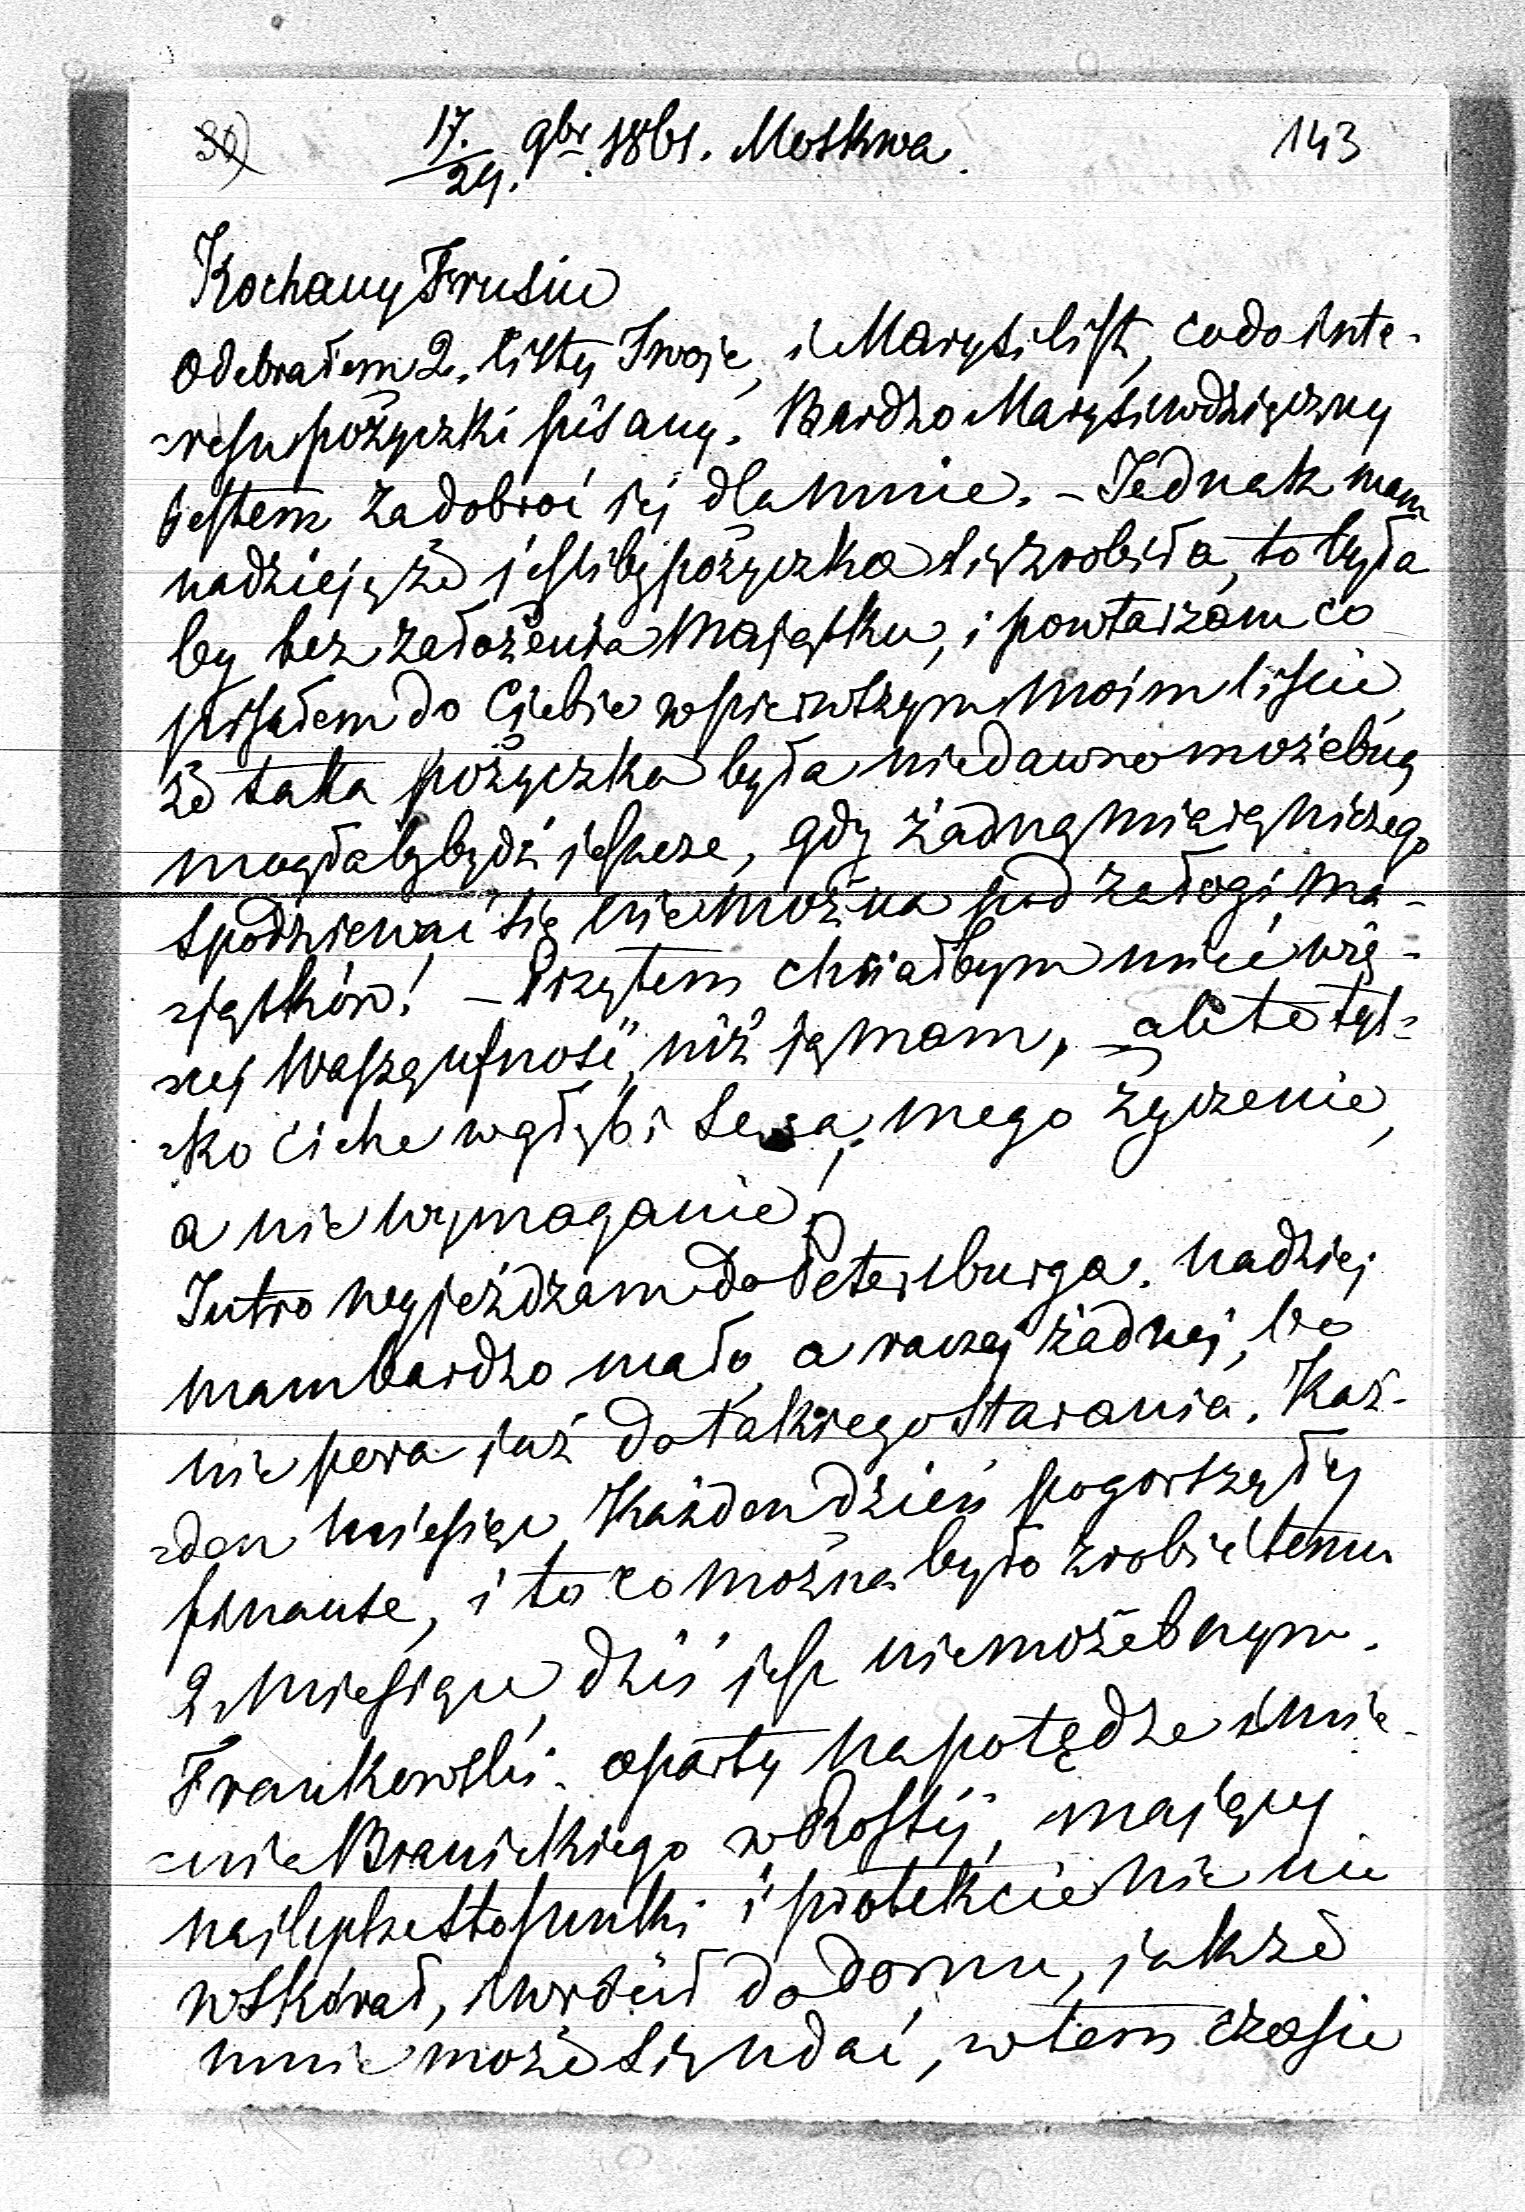 30) 17./29. 9br. 1861. Moskwa. 143
Kochany Frusiu
Odebrałem 2. listy Twoje, i Marysi list, co do inte-
-resu pożyczki pisany. Bardzo Marysi wdzięczny
jestem za dobroć jéj dla mnie. – Jednak mam
nadzieję że jeśliby pożyczka się zrobiła, to była
by bez założenia Majątku, i powtarzam co
pisałem do Ciebie w pierwszym moim liście,
że taka pożyczka była niedawno możebną
mogłaby być jeszcze, gdy żadną miarą niczego
spodziewać się nie można pod załogi ma-
-jątków! – Przytem chciałbym mieć wię-
-cej Waszą ufność, niż ją mam, – ale to tyl-
-ko ciche w głębi serca, mego życzenie,
a nie wymaganie!
Jutro wyjeżdżam do Petersburga. nadziej
mam bardzo mało, a raczej żadnej, bo
nie pora już do takiego starania. Każ-
-den miesiąc, Każden dzień pogorszyły
finanse, i to co można było zrobić temu
2. Miesiące, dziś jest niemożebnym.
Frankowski oparty na potędze imie-
-nia Branickiego w Rossyj, mający
najlepsze stosunki i protekcie nic nie
wskórał, i wrócił do domu, jakże
mnie może się udać, w tem czasie